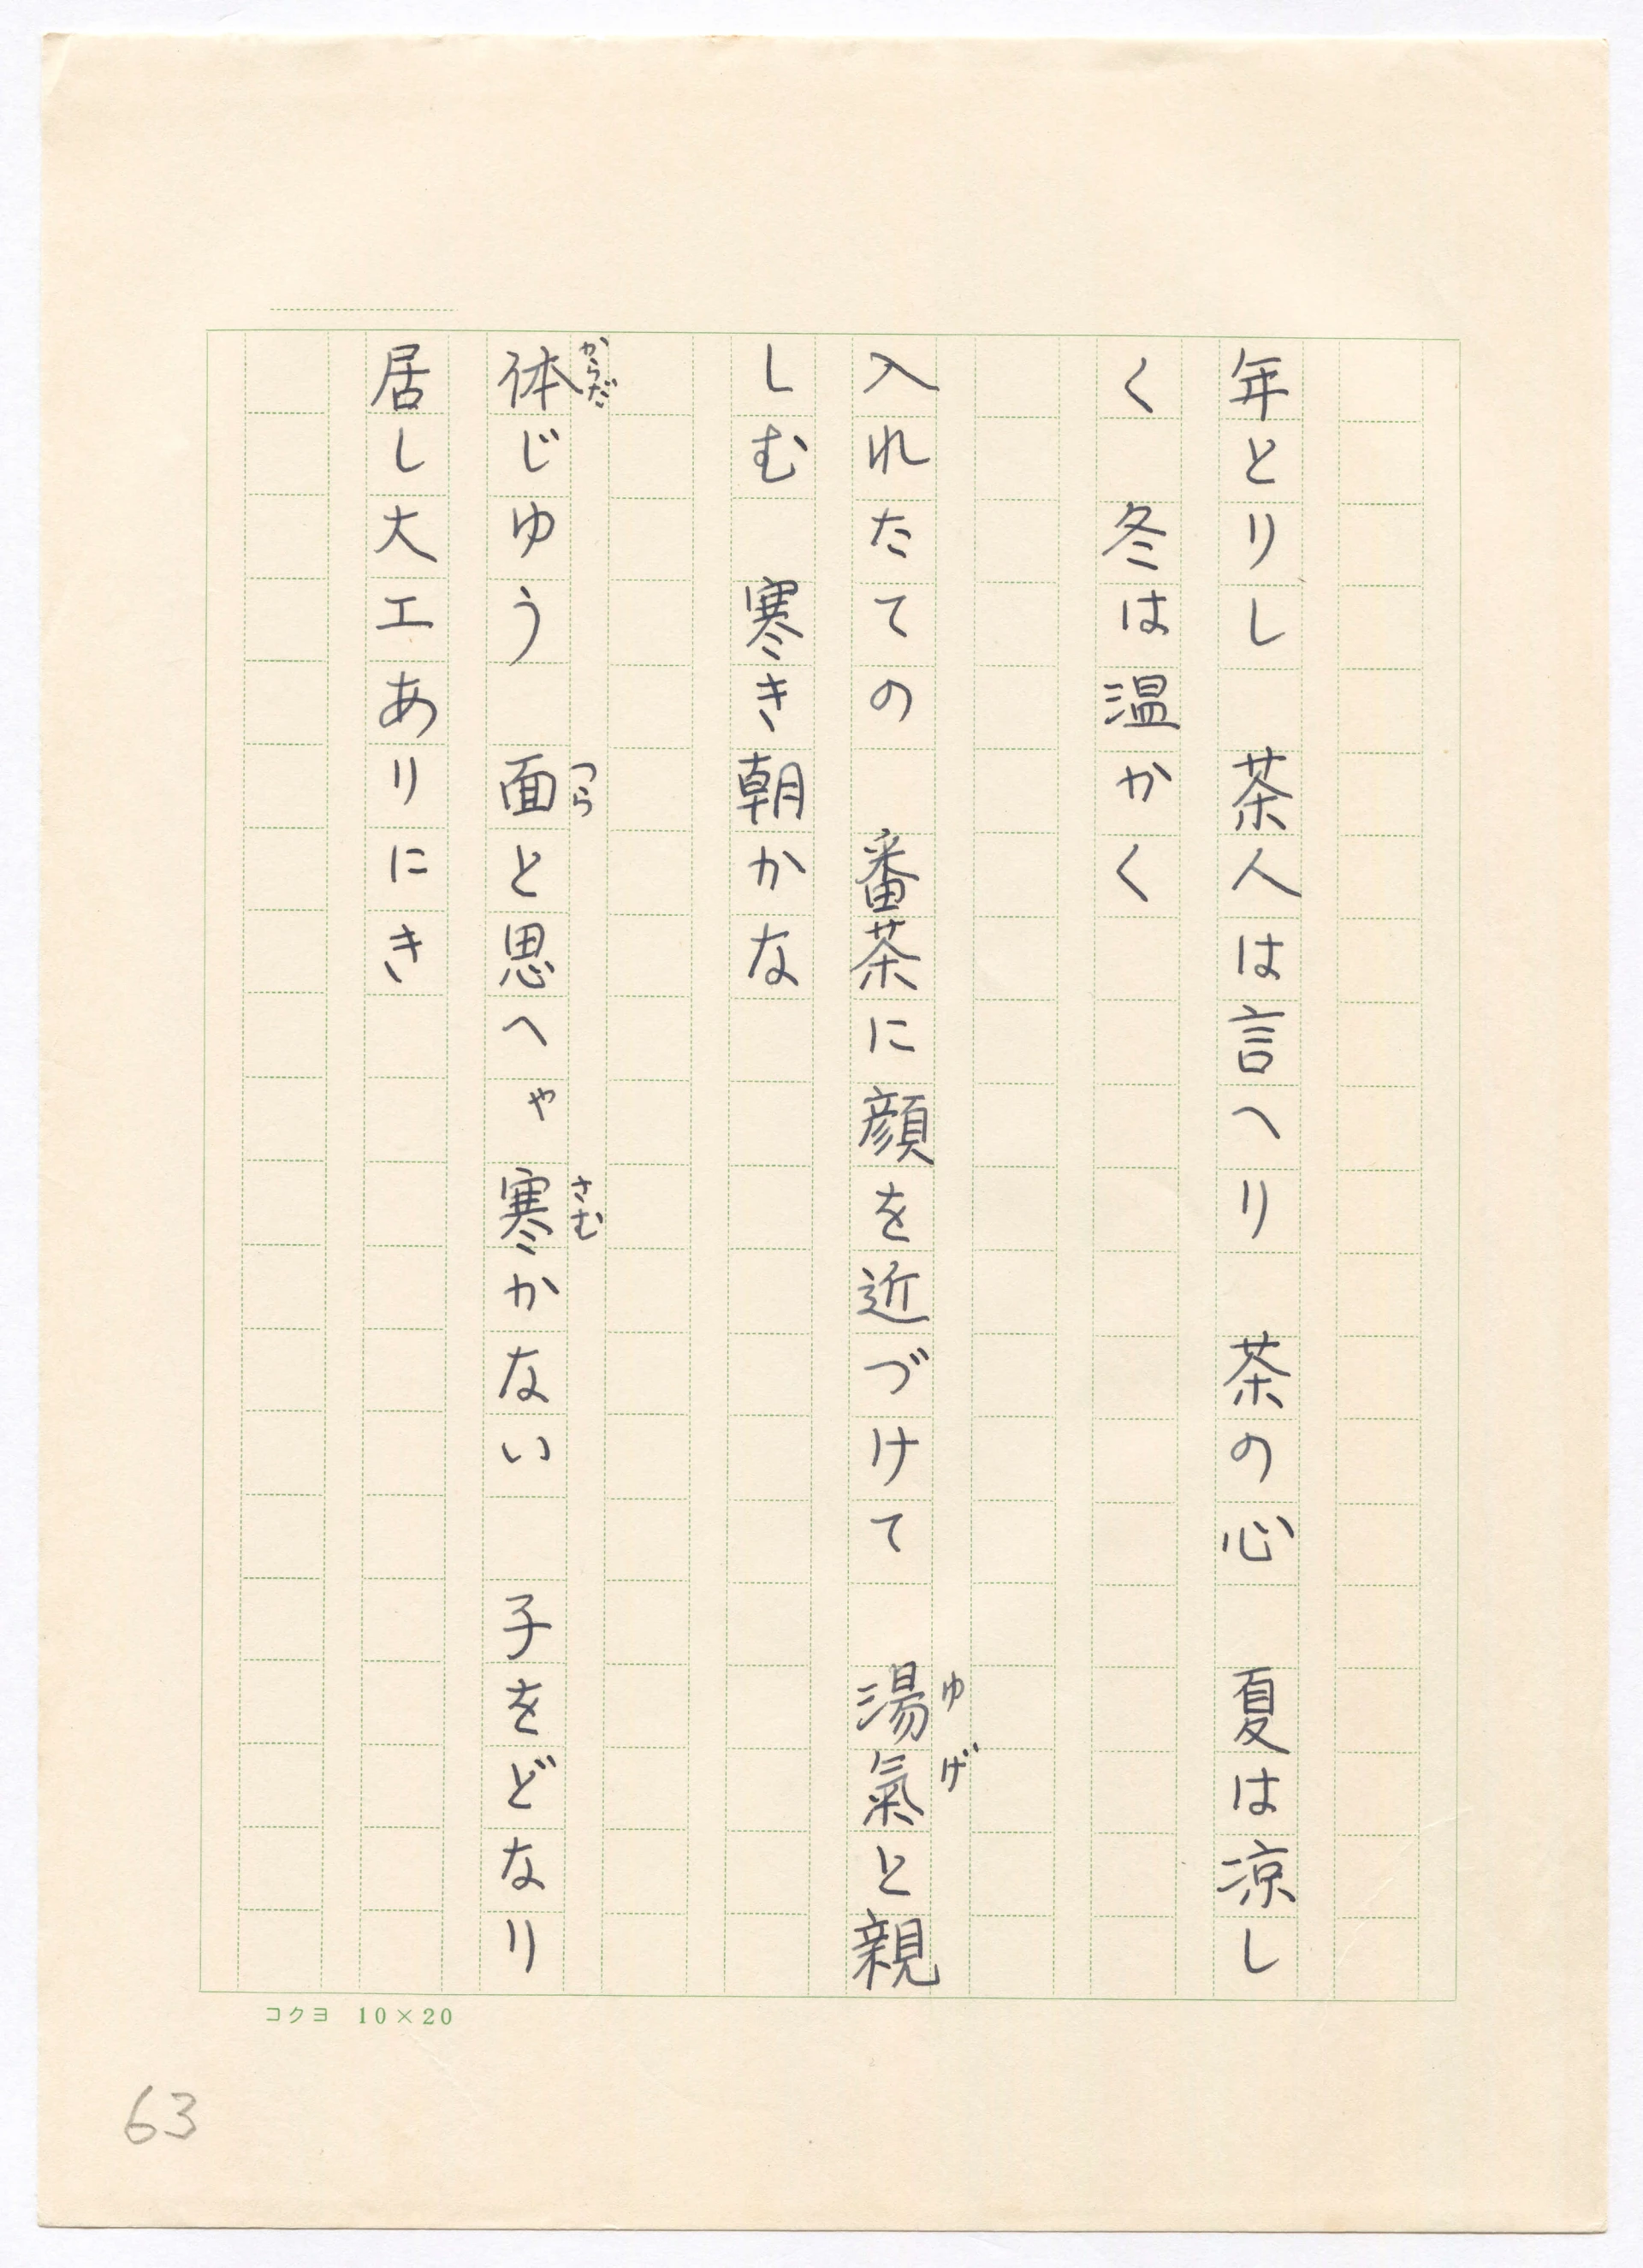 年とりし　茶人は言へり　茶の心　夏は涼し
く　冬は温かく
入れたての　番茶に顔を近づけて　湯氣と親
ゆげ
しむ　寒き朝かな
体じゆう　面と思へゃ寒かない　子をどなり
からだ
つら
さむ
居し大工ありにき
コクヨ 10×20
63